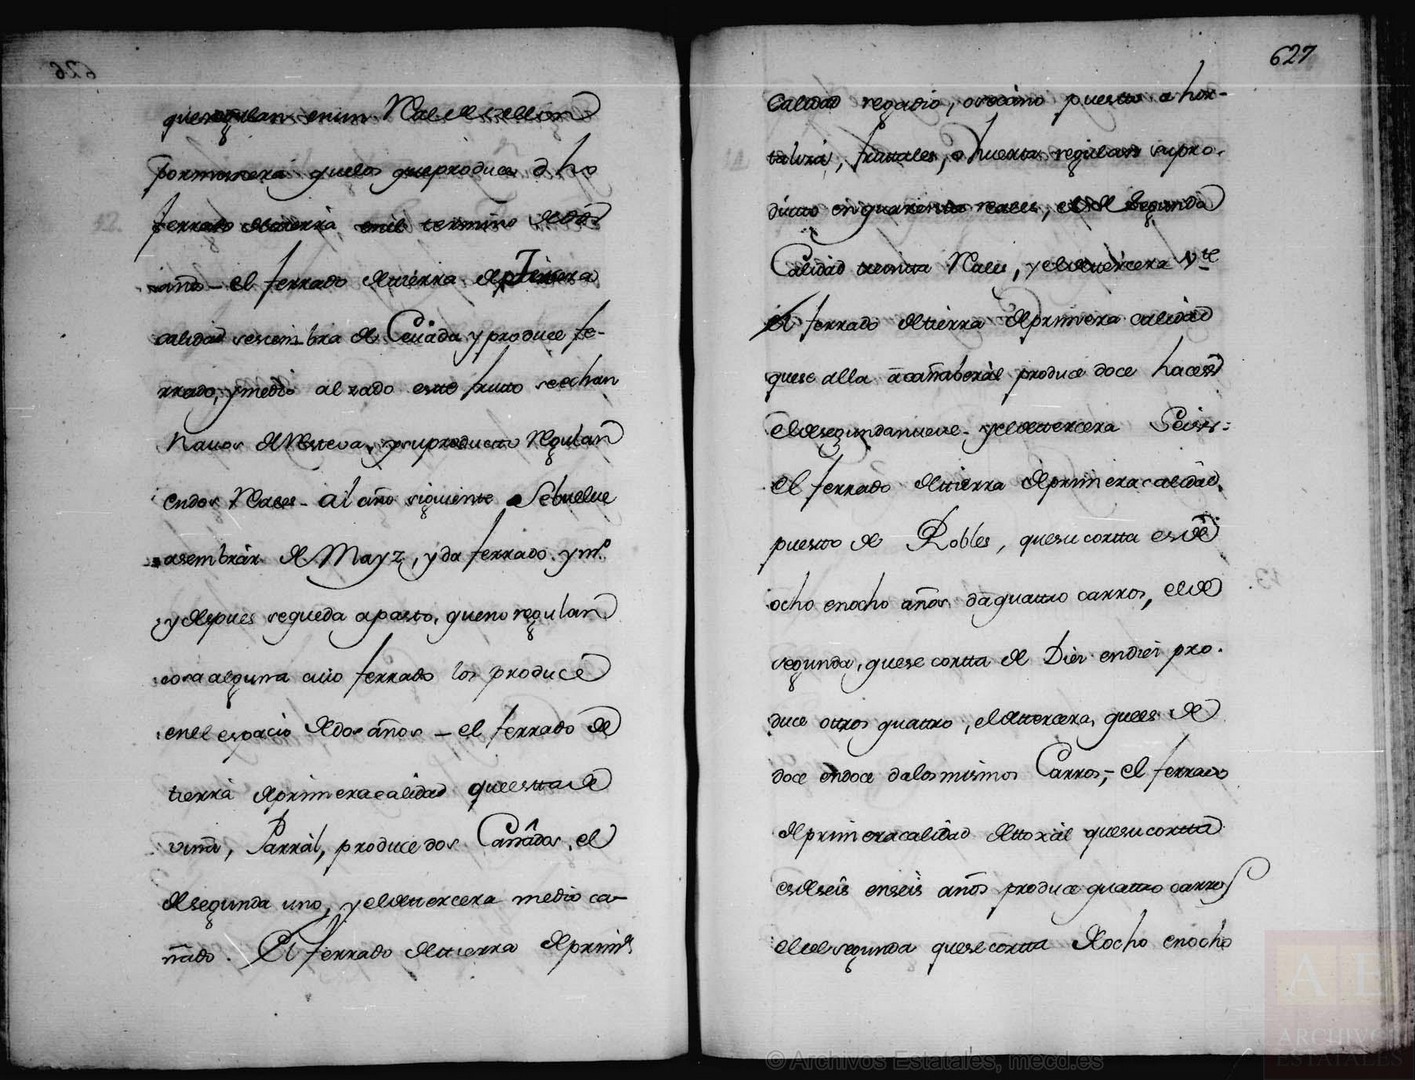 626
que regulan en un Real de vellon
por manera que los que produce dho
ferrado de tierra, en el termino de dos
años - el ferrado de tierra de Primera
calidad se siembra de Ceuada y produce fe-
rrado, y medio alzado este fruto se echan
Nauos de Nesteva, y su producto regulan
en dos Reales - al año siguiente se buelue
a sembrar de Mayz, y da ferrado y mº
y despues se queda a pasto, que no regulan
cosa alguna cuio ferrado los produce
en el espacio de dos años - el ferrado de
tierra de primera calidad que esta de
viña, Parral, produce dos Cañados, el
de segunda uno, y el de tercera medio ca-
ñado. El ferrado de tierra de primª
627
Calidad regadio, o secano puesto a hor-
taliza, frutales, o huertas regulan su pro-
ducto en quarenta reales, el de segunda
Calidad treinta Reales, y el de tercera Vte
el ferrado de tierra de primera calidad
que se alla a cañaberal produce doce haces
el de segunda nueve, y el de tercera Seis:
el ferrado de tierra de primera calidad
puesto de Robles, que su cortta es de
ocho en ocho años da quattro carros, el de
segunda, que se cortta de Diez en diez pro-
duce ottros quattro, el de tercera, que es de
doce en doce da los mismos Carros,- el ferrado
de primera calidad de ttoxal que su cortta
es de seis en seis años produce quattro carros
el de segunda que se cortta de ocho en ocho
© Archivos Estatales, mecd.es
AE
ARCHIVOS
ESTATALES